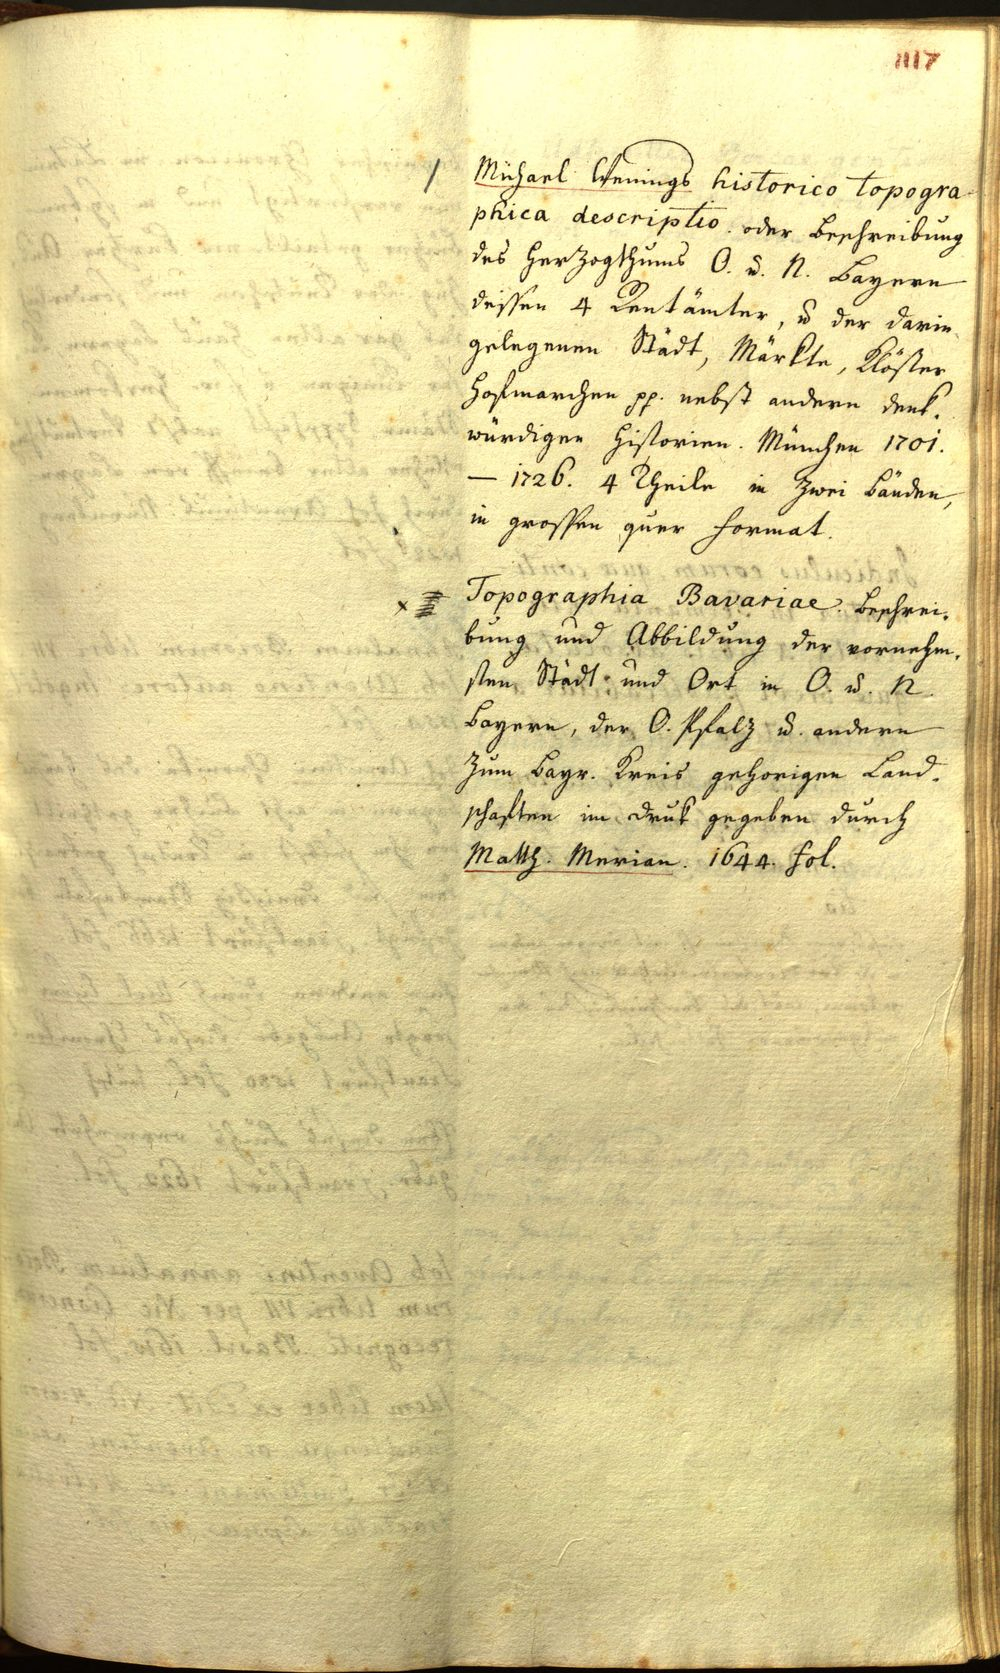 1117
Michael Wenings historico topogra
phica descriptio. oder Beschreibung
des Herzogthums O. u. N. Bayern
dessen 4 Rentämter, u der darin
gelegenen Städt, Märkte, Klöster
Hofmarchen pp. nebst andern denk.
würdigen Historien. München 1701.
— 1726. 4 Theile in zwei Bänden,
in grossen quer Format.
Topographia Bavariae. Beschrei.
bung und Abbildung der vornehm.
sten Städt und Ort in O. u. N.
Bayern, der O. Pfalz u. andern
zum Bayr. Kreis gehorigen Land.
schaften im druk gegeben durch
Matth. Merian. 1644. fol.